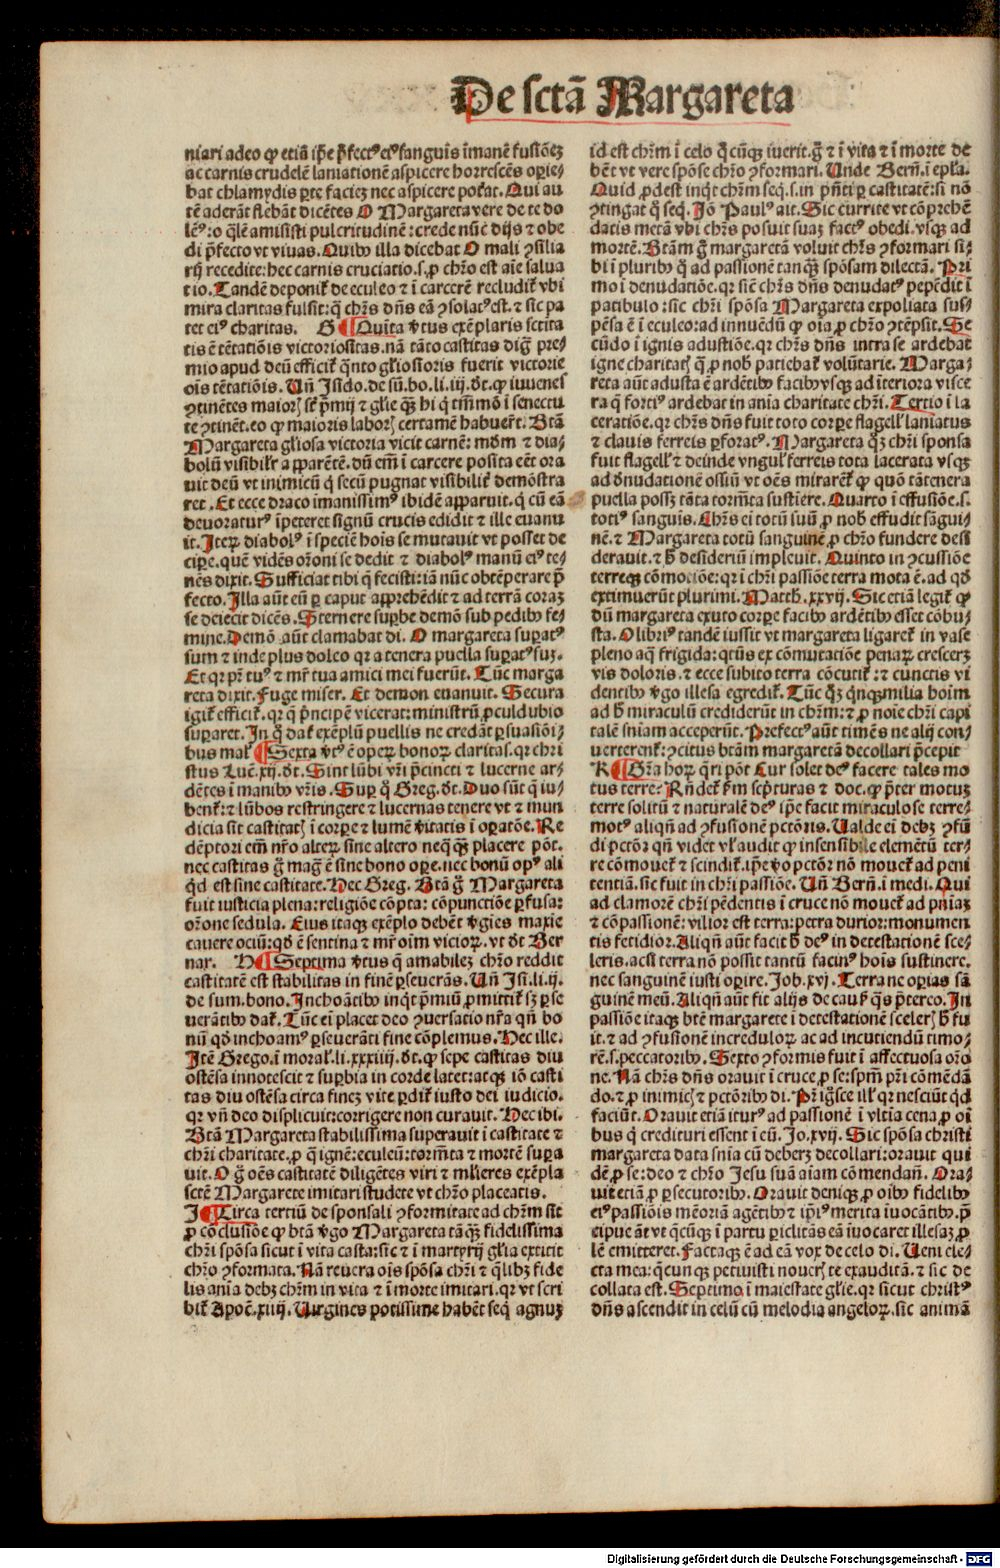 De sctā Margareta
niari adeo ꝙ etiā ip̄e p̄fectꝰ eiꝰ sanguīs īmanē fusiōeꝫ
ac carnis crudelē laniationē aspicere horrescēs operie/
bat chlamydis ꝑte facieꝫ nec aspicere poťat. Qui au
tē aderāt flebāt dicētes O Margareta vere de te do
lēꝰ: o q̄lē amisisti pulcritudinē: crede nūc dijs ⁊ obe
di p̄fecto vt viuas. Quibꝰ illa dicebat O mali ꝯsilia
rij recedite: hec carnis cruciatio .s. ꝓ chr̄o est aīe salua
tio. Tandē deponiť de eculeo ⁊ ī carcerē recludiť vbi
mira claritas fulsit: q̄ chr̄s dn̄s eā ꝯsolatꝰ est. ⁊ sic pa
tet eiꝰ charitas. G Quīta v̄tus exēplaris sctita
tis ē tētatiōis victoriositas. nā tāto castitas dign̄ pre/
mio apud deū efficiť quāto gl̓iosioris fuerit victorie
oīs tētatiōis. Un̄ Isido. de sū. bo. li. iij. ꝺt. ꝙ iuuenes
ꝯtinētes maioris st̄ p̄mij ⁊ gl̓ie qꝫ hi q̄ tīīmō ī senectu
te ꝯtinēt. eo ꝙ maioris laboris certamē habuer̄t. Btā
Margareta gl̓iosa victoria vicit carnē: mūdū ⁊ dia/
bolū visibilit̓ apparētē. dū em̄ ī carcere posita eēt ora
uit deū vt inimicū q̄ secū pugnat visibiliť demōstra
ret. Et ecce draco imanissimꝰ ibidē apparuit. q̄ cū eā
deuoraturꝰ īpeteret signū crucis edidit ⁊ ille euanu
it. Iteꝝ diabolꝰ ī speciē hoīs se mutauit vt posset de
cipe. quē vidēs or̄oni se dedit ⁊ diabolꝰ manū eiꝰ te/
nēs dixit. Sufficiat tibi q̄ fecisti: iā nūc obtēperare p̄
fecto. Illa aūt eū ꝑ caput apprehēdit ⁊ ad terrā coraꝫ
se deiecit dicēs. Sternere suꝑbe demō sub pedibꝰ fe/
mine. Demō aūt clamabat di. O margareta suꝑatꝰ
sum ⁊ inde plus doleo qr a tenera puella suꝑatꝰ suꝫ.
Et qr pr̄ tuꝰ ⁊ mr̄ tua amici mei fuerūt. Tūc marga
reta dixit. Fuge miser. Et demon euanuit. Secura
igiť efficiť. qr q̄ p̄ncipē vicerat: ministrū ꝓculdubio
suꝑaret. In q̄ dať exēplū puellis ne credāt ꝑsuasiōi/
bus mal̓ Sexta v̄tꝰ ē opeꝝ bonoꝝ claritas. qr chri
stus Luē. xij. ꝺt. Sint lūbi vr̄i p̄cincti ⁊ lucerne ar/
dētes ī manibꝰ vr̄is. Suꝑ q̄ Greg. ꝺt. Duo sūt q̄ iu/
benť: ⁊ lūbos restringere ⁊ lucernas tenere vt ⁊ mun
dicia sit castitatis ī corꝑe ⁊ lumē v̄itatis ī oꝑatōe. Re
dēptori em̄ nr̄o alteꝝ sine altero neqꝫ placere pōt.
nec castitas ḡ mag̓ ē sine bono oꝑe. nec bonū opꝰ ali
qd̓ est sine castitate. Hec Greg. Btā ḡ Margareta
fuit iusticia plena: religiōe cōpta: cōpunctiōe ꝑfusa:
or̄one sedula. Eius itaqꝫ exēplo debēt v̄gīes maxīe
cauere ociū: qd̓ ē sentina ⁊ mr̄ oīm vicioꝝ. vt ꝺt Ber
nar. H Septima v̄tus q̄ amabileꝫ chr̄o reddit
castitatē est stabilitas in finē ꝑseuerās. Un̄ Isi. li. ij.
de sum. bono. Inchoātibꝰ inq̄t p̄miū ꝓmittiť sꝫ ꝑse
uerātibꝰ dať. Tūc ei placet deo ꝯuersatio nr̄a qn̄ bo
nū qd̓ inchoamꝰ ꝑseuerāti fine cōplemus. Hec ille.
Itē Grego. ī moral̓. li. xxxiiij. ꝺt. ꝙ sepe castitas diu
ostēsa innotescit ⁊ suꝑbia in corde latet: atqꝫ iō casti
tas diu ostēsa circa fineꝫ vite ꝑdiť iusto dei iudicio.
qr vn̄ deo displicuit: corrigere non curauit. Hec ibi.
Btā Margareta stabilissima superauit ī castitate ⁊
chr̄i charitate. ꝓ q̄ ignē: eculeū: torm̄ta ⁊ mortē supera
uit. O ḡ oēs castitatē diligētes viri ⁊ mulieres exēpla
sctē Margarete imitari studete vt chr̄o placeatis.
I Circa tertiū de sponsali ꝯformitate ad chr̄m sit
ꝓ cōclusiōe ꝙ btā v̄go Margareta tāqꝫ fidelissima
chr̄i spōsa sicut ī vita casta: sic ⁊ ī martyrij gl̓ia extitit
chr̄o ꝯformata. Nā reuera oīs spōsa chr̄i ⁊ q̄libꝫ fide
lis anīa debꝫ chr̄m in vita ⁊ ī morte imitari. qr vt scri
biť Apoē. xiiij. Uirgines potissime habēt seq̄ agnuꝫ
id est chr̄m ī celo q̄cūqꝫ iuerit. ḡ ⁊ ī vita ⁊ ī morte de
bēt vt vere spōse chr̄o ꝯformari. Unde Bern̄. ī ep̄la.
Quid ꝓdest inq̄t chr̄m seq̄ .s. in pn̄ti ꝑ castitatē: si nō
ꝯtingat q̄ seq̄. Jō Paulꝰ ait. Sic currite vt cōprehē
datis metā vbi chr̄s posuit suaꝫ factꝰ obedi. vsqꝫ ad
mortē. Btām ḡ margaretā voluit chr̄s ꝯformari si/
bi ī pluribꝰ q̄ ad passionē tanqꝫ spōsam dilectā. Pri
mo ī denudatiōe. qr sicut chr̄s dn̄s denudatꝰ pepēdit ī
patibulo: sic chr̄i spōsa Margareta expoliata sus/
pēsa ē ī eculeo: ad innuēdū ꝙ oīa ꝓ chr̄o ꝯtēpsit. Se
cūdo ī ignis adustiōe. qr chr̄s dn̄s intra se ardebat
igne charitatis q̄ ꝓ nob̓ patiebať volūtarie. Marga/
reta aūt adusta ē ardētibꝰ facibꝰ vsqꝫ ad īteriora visce
ra q̄ fortiꝰ ardebat in anīa charitate chr̄i. Tertio ī la
ceratiōe. qr chr̄s dn̄s fuit toto corꝑe flagell̓ laniatus
⁊ clauis ferreis ꝑforatꝰ. Margareta q̄qꝫ chr̄i sponsa
fuit flagell̓ ⁊ deinde vngul̓ ferreis tota lacerata vsqꝫ
ad d̓nudationē ossiū vt oēs mirarēť ꝙ quō tā tenera
puella possꝫ tāta torm̄ta sustīere. Quarto ī effusiōe .s.
totiꝰ sanguīs. Chr̄s ei totū suū ꝓ nob̓ effudit sāgui/
nē. ⁊ Margareta totū sanguinē ꝓ chr̄o fundere desi
derauit. ⁊ h̓ desideriū impleuit. Quinto in ꝯcussiōe
terreqꝫ cōmotiōe: qr ī chr̄i passiōe terra mota ē. ad qd̓
extimuerūt plurimi. Matth. xxvij. Sic etiā legiť ꝙ
dū margareta exuto corꝑe facibꝰ ardētibꝰ esset cōbu/
sta. Olibriꝰ tandē iussit vt margareta ligareť in vase
pleno aq̄ frigida: qtūs ex cōmutatiōe penaꝝ cresceꝫ
vis doloris. ⁊ ecce subito terra cōcutiť: ⁊ cunctis vi
dentibꝰ v̄go illesa egrediť. Tūc q̄ꝫ qnqꝫ milia hoīm
ad h̓ miraculū crediderūt in chr̄m: ⁊ ꝓ noīe chr̄i capi
talē sniam acceperūt. Prefectꝰ aūt timēs ne alij con/
uerterenť: ꝯcitus btām margaretā decollari p̄cepit
K Gr̄a hoꝝ q̄ri pōt Cur solet deꝰ facere tales mo
tus terre? Rn̄deť ẜm scpturas ⁊ doc. ꝙ p̄ter motuꝫ
terre solitū ⁊ naturalē deꝰ ip̄e facit miraculose terre/
motꝰ aliqn̄ ad ꝯfusionē pctōris. Ualde ei debꝫ ꝯfū
di pctōr qn̄ videt vl̓ audit ꝙ insensibile elemētū ter/
re cōmoueť ⁊ scindiť. ip̄e vo pctōr nō moueť ad peni
tentiā. sic̄ fuit in chr̄i passiōe. Un̄ Bern̄. ī medi. Qui
ad clamorē chr̄i pēdentis ī cruce nō moueť ad pn̄iaꝫ
⁊ cōpassionē: vilior est terra: petra durior: monumen
tis fetidior. Aliqn̄ aūt facit h̓ deꝰ in detestationē sce/
leris. acsi terra nō possit tantū facinꝰ hoīs sustinere.
nec sanguinē iusti oꝑire. Job. xvj. Terra ne oꝑias sā
guinē meū. Aliqn̄ aūt fit alijs de causis q̄s p̄tereo. In
passiōe itaqꝫ btē margarete ī detestationē sceleris h̓ fu
it. ⁊ ad ꝯfusionē increduloꝝ ac ad incutiendū timo/
rē .s. peccatoribꝰ. Sexto ꝯformis fuit ī affectuosa or̄o
ne. Nā chr̄s dn̄s orauit ī cruce ꝓ se: spm̄ pr̄i cōmēdā
do. ⁊ ꝓ inimicis ⁊ pctōribꝰ di. Pr̄ ignosce ill̓ qr nesciūt qd̓
faciūt. Orauit etiā iturꝰ ad passionē ī vltīa cena ꝓ oī
bus q̄ credituri essent ī eū. Jo. xvij. Sic spōsa christi
margareta data snīa cū deberꝫ decollari: orauit qui
dē ꝓ se: deo ⁊ chr̄o Jesu suā aīam cōmendan̄. Ora/
uit etiā ꝓ ꝑsecutoribꝰ. Orauit deniqꝫ ꝓ oībꝰ fidelibꝰ
eiꝰ passiōis mēoriā agētibꝰ ⁊ ip̄iꝰ merita iuocātibꝰ. p̄
cipue āt vt q̄cūqꝫ ī partu ꝑiclitās eā iuocaret illesaꝫ ꝓ
lē emitteret. Factaqꝫ ē ad eā vox de celo di. Ueni ele/
cta mea: q̄cunqꝫ petiuisti noueris te exauditā. ⁊ sic de
collata est. Septimo ī maiestate gl̓ie. qr sicut christꝰ
dn̄s ascendit in celū cū melodia angeloꝝ. sic animā
Digitalisierung gefördert durch die Deutsche Forschungsgemeinschaft - DFG